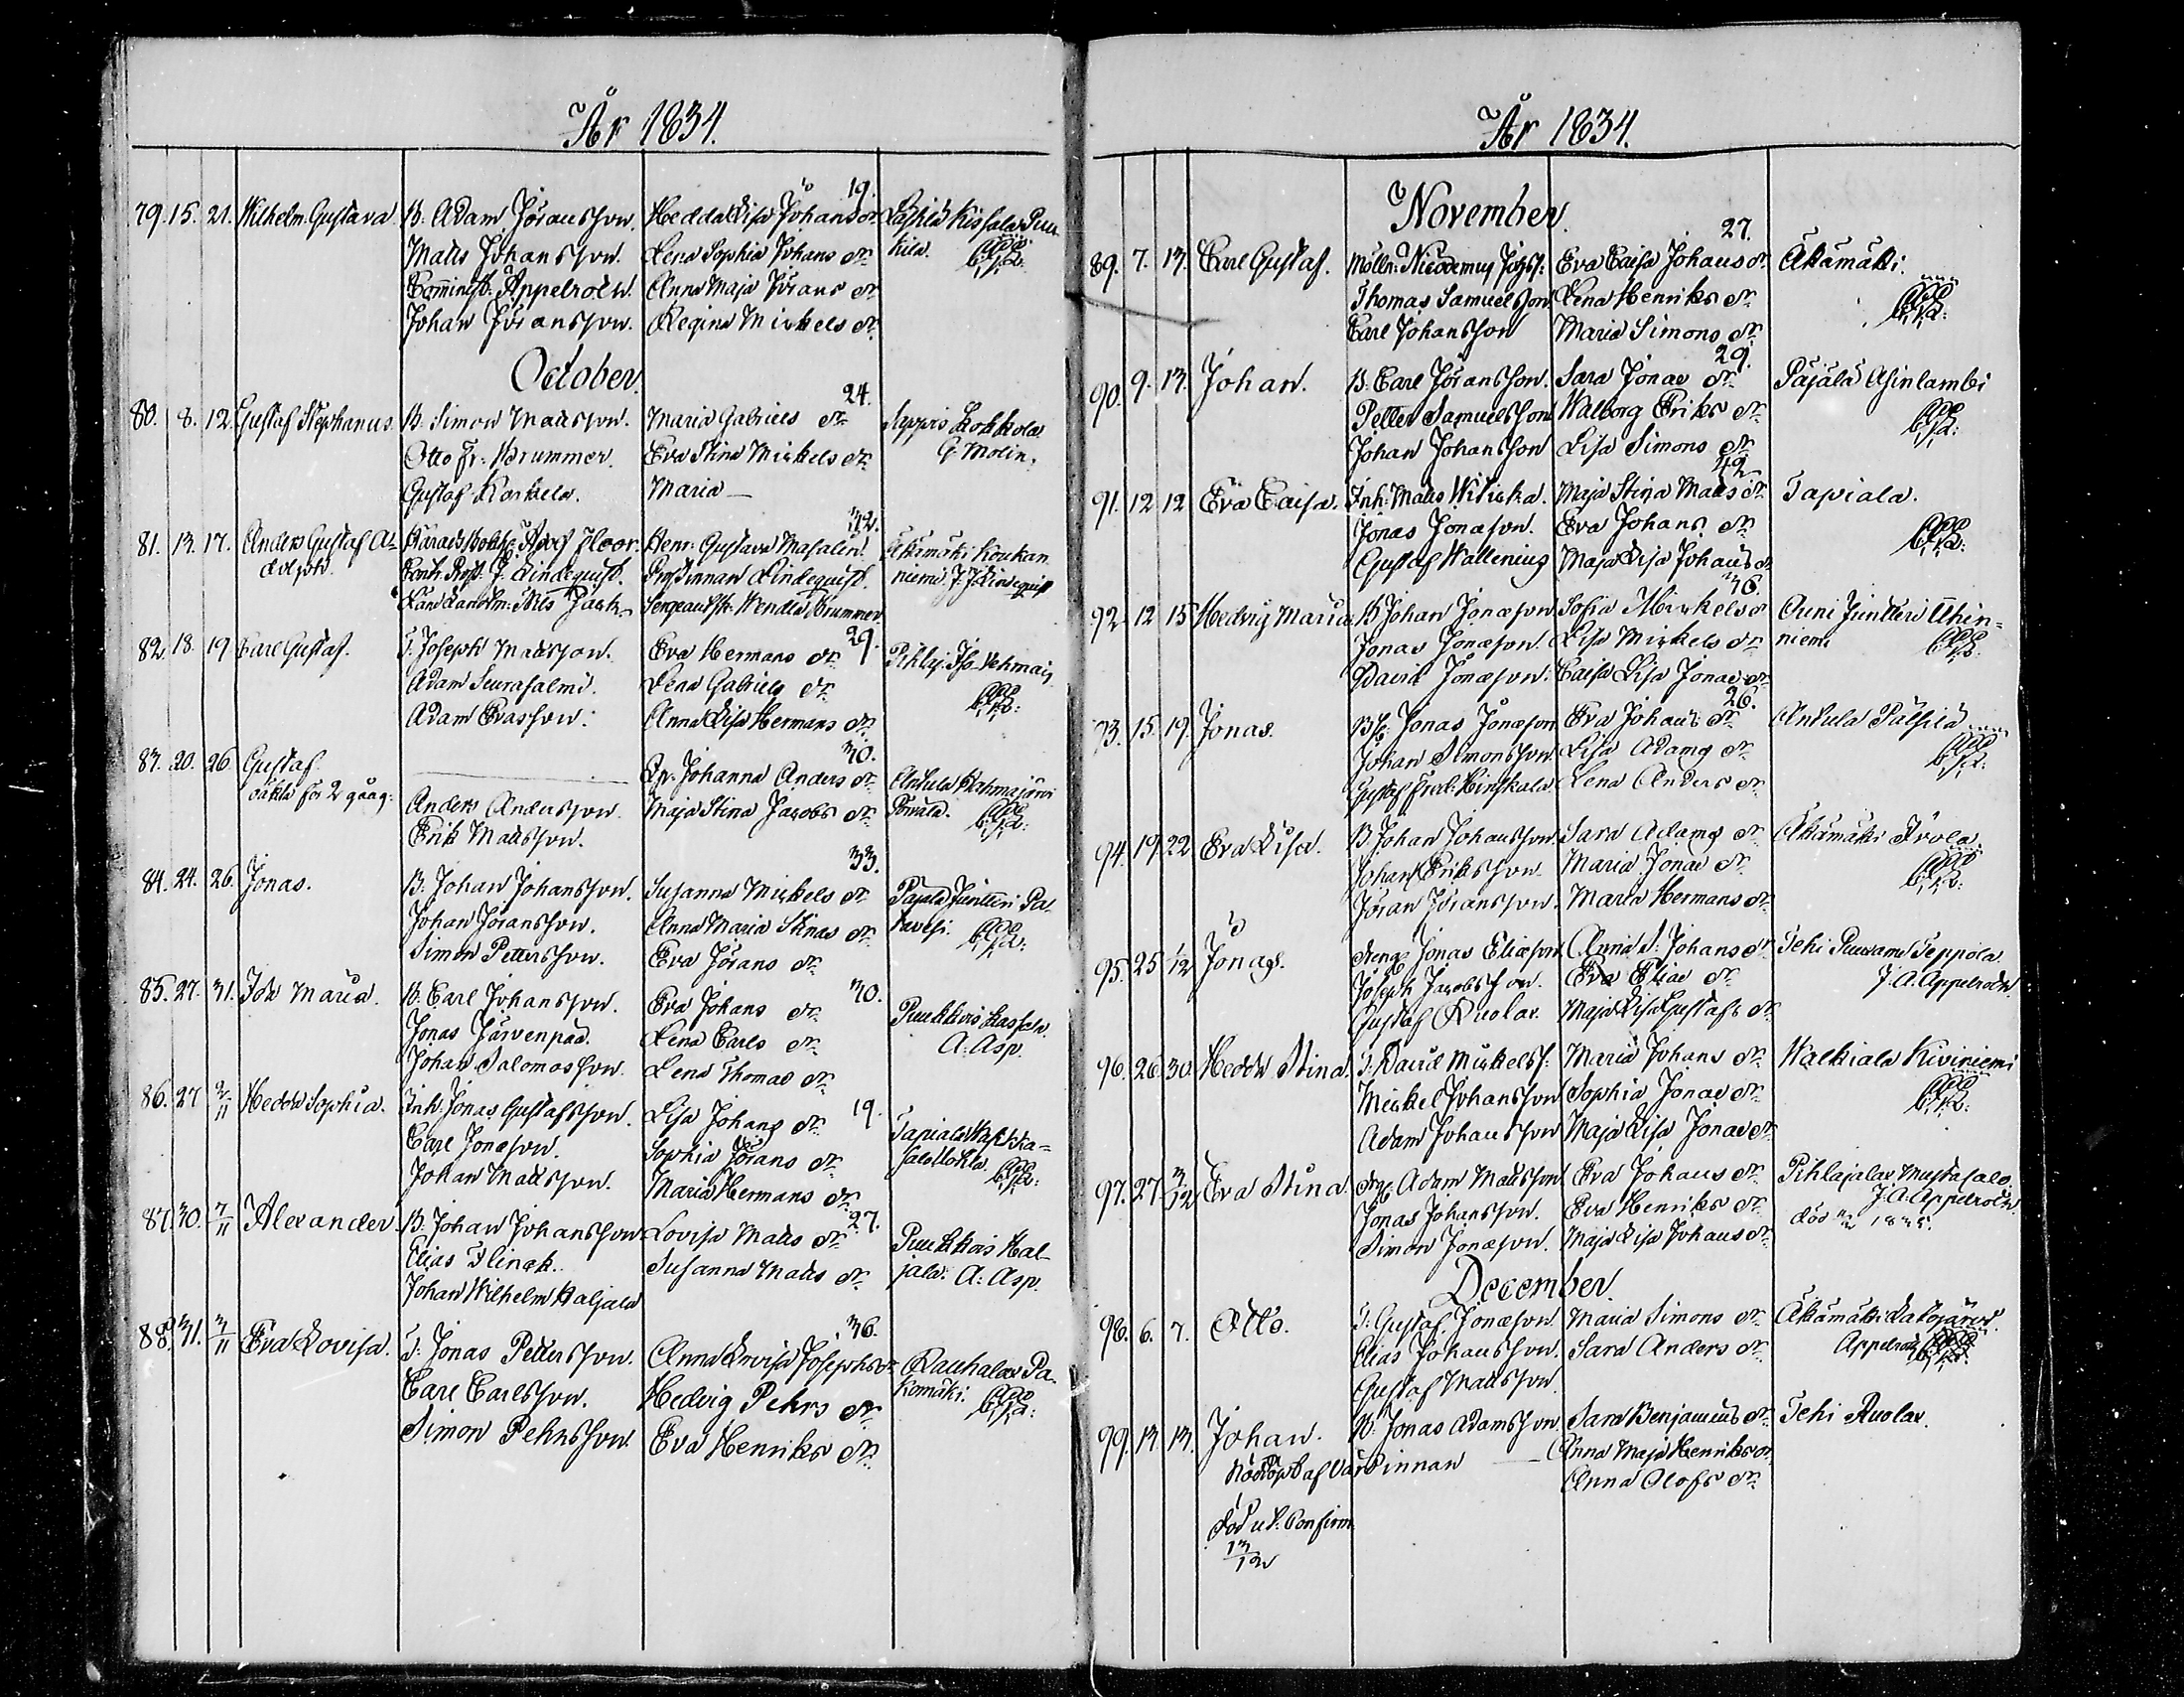 År 1834.
79. 15. 21. Wilhelm. Gustava. B: Adam Jöransson. Hedda Lisa Johans dr 19.
Matts Johansson. Lena Sophia Johans dr kila.
Comminist: Appelroth. Anna Maja Jörans dr
Johan Jöransson. Regina Mickels dr
October.
80. 8. 12. Gustaf Stephanus. B: Simon Mattsson. Maria Gabriels dr 24. Seppis Kokkola
Otto Fr: Brummer. Eva Stina Mickels dr G. Molin.
Gustaf Korkela. Maria —
81. 13. 17. Anders Gustaf A- Floor. Henr: Gustava Masalin 32. Äkämäki Koukan
dolph. Contr. Prost: J. Lindequist. Prostinnan Lindequist. niemi. J. J. Lindequist
Länd Landtm: Nils Fack Sergeantsfr: Wendla Brummer
82. 18. 19 Carl Gustaf. T. Joseph Mattsson. Eva Hermans dr 29. Pihlaj: Iso Vehmais
Adam Seurasalmi. Lena Gabriels dr
Adam Evasson. Anna Lisa Hermans dr
83. 20. 26 Gustaf. Qv. Johanna Anders dr 30. Ankula Kahmajärvi
oäkta för 2 gång: Anders Andersson. Maja Stina Jacobs dr Torvala.
Erik Mattsson.
84. 24. 26. Jonas. B. Johan Johansson. Susanna Mickels dr 33. Pajala Junttiri Pa-
Johan Jöransson. Anna Maria Stinas dr kavesi.
Simon Pettersson. Eva Jörans dr
85. 27. 31. Ida Maria. B. Carl Johansson. Eva Johans dr 30. Puckkois Kassala
Jonas Järvenpää. Lena Carls dr A: Asp.
Johan Salomosson. Lena Thomas dr
86. 27 2/11 Hedda Sophia. Inh: Jonas Gustafsson. Lisa Johans dr 19. Tapiala
Carl Jonasson. Sophia Jörans dr
Johan Mattsson. Maria Hermans dr
87. 30. 7/11 Alexander. B. Johan Johansson Lovisa Matts dr 27. Puckkois Hal-
Elias Flinck. Susanna Matts dr jala: A: Asp.
Johan Wilhelm Haljala
88. 31. 3/11 Eva Lovisa. T: Jonas Pettersson. Anna Lovisa Josephs dr 36. Rauhalax Pa-
Carl Carlsson. Hedvig Pehrs dr komäki:
Simon Pehrsson. Eva Henriks dr
År 1834.
November.
89. 7. 13. Carl Gustaf. Mölln: Nicodemus Eva Caisa Johans dr 27. Äkämäki.
Thomas Samuelsson. Lena Henriks dr
Carl Johansson Maria Simons dr
90. 9. 13. Johan. B. Carl Jöransson. Sara Jonas dr 29. Pajala Ahinlambi
Petter Samuelsson Walborg Eriks dr
Johan Johansson Lisa Simons dr
91. 12 12 Eva Caisa. Inh: Matts Witicka. Maja Stina Matts dr 42 Tapiala.
Jonas Jonasson. Eva Johans dr
Gustaf Wallenius Maja Lisa Johans dr
92. 12 15 Hedvig Maria B Johan Jonasson Sofia Mickels dr 36. Ouni Junttiri Uhin-
Jonas Jonasson. Lisa Mickels dr niemi
David Jonasson. Caisa Lisa Jonas dr
93. 15. 19. Jonas. Jonas Jonasson Eva Johans dr 26. Ankula Pälsilä
Johan Simonsson. Lisa Adams dr
Gustaf Fred: Hinskala Lena Anders dr
94. 19. 22 Eva Lisa. B. Johan Johansson. Sara Adams dr Äkämäki Ivola.
Johan Eriksson. Maria Jonas dr
Jöran Jöransson. Maria Hermans dr
95. 25 1/12 Jonas. dreng Jonas Eliasson Anna S. Johans dr Tehi Puusami Seppola.
Joseph Jacobsson. Eva Elias dr J. A. Appelroth.
Gustaf Ruolax. Maja Lisa Gustafs dr
96. 26 30 Hedda Stina. T. David Mickelss: Maria Johans dr Walkiala Kiviniemi
Mickel Johansson Sophia Jonas dr
Adam Johansson Maja Lisa Jonas dr
97. 27. 3/12 Eva Stina drg Adam Mattsson Eva Johans dr Pihlajalax Mustasalo.
Jonas Johansson. Eva Henriks dr J. A. Appelroth.
Simon Jonasson. Maja Lisa Johans dr död 1835.
December.
98. 6. 7. Otto. T: Gustaf Jonasson. Maria Simons dr Äkämäki Lakojärvi.
Elias Johansson. Sara Anders dr Appelroth
Gustaf Mattsson.
99. 13 13. Johan. B: Jonas Adamsson Sara Benjamins dr Tehi Ruolax.
Nöddöpt af Värdinnan — Anna Maja Henriks dr
Anna Olofs dr
död u t: Confirm
13/12